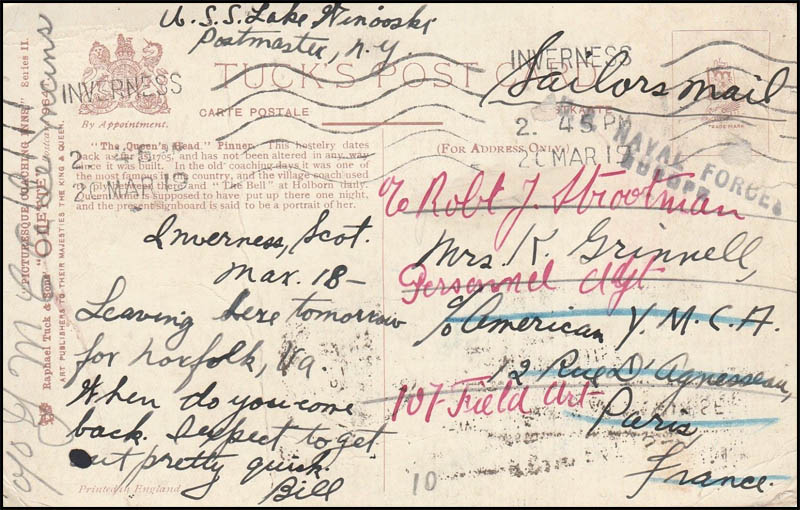 U.S.S. Lake Winooski
Postmaster, N.Y.
INVERNESS
INVERNESS
TUCK'S POST CARD
CARTE POSTALE
By Appointment.
Sailors mail
2. 45 PM
MAR 19
U.S. NAVAL FORCES
EUROPE
TRADE MARK
(FOR ADDRESS ONLY.)
"The Queen's Head." Pinner. This hostelry dates
back as far as 1705, and has not been altered in any way
since it was built. In the old coaching days it was one of
the most famous in the country, and the village coach used
to ply between there and "The Bell" at Holborn daily.
Queen Anne is supposed to have put up there one night,
and the present signboard is said to be a portrait of her.
2 45 PM
MAR 19
Inverness, Scot.
Mar. 18–
Leaving here tomorrow
for Norfolk, Va
When do you come
back. I expect to get
out pretty quick.
Bill
Printed in England
c/o Robt J. Strootman
Mrs K. Grinnell,
Personnel Adgt
c/o American Y.M.C.A.
12 Rue D'Aguesseau,
107 Field Art
Paris
France.
10
"PICTURESQUE COACHING INNS." Series II.
Raphael Tuck & Sons' "OILETTE"
ART PUBLISHERS TO THEIR MAJESTIES THE KING & QUEEN.
c/o Y M C A